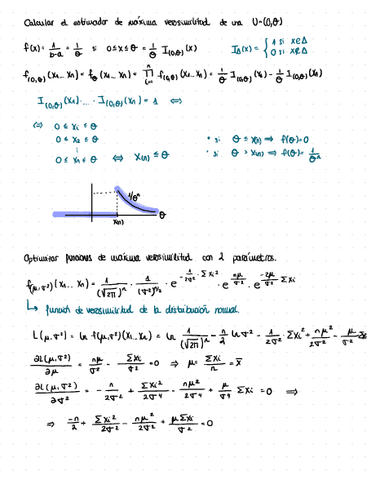 Calcular el estimador de máxima verosimilitud de una U-(0,θ)
f(x) = 1/(b-a) = 1/θ si 0≤x≤θ = 1/θ I(0,θ)(x)
I_Δ(x) = { 1 si x∈Δ
0 si x∉Δ
f(0,θ)(x₁...xₙ) = f_θ(x₁...xₙ) = ∏ᵢ₌₁ⁿ f(0,θ)(x₁...xₙ) = 1/θ I(0,θ)(x₁) · 1/θ I(0,θ)(xₙ)
I(0,θ)(x₁) · ... · I(0,θ)(xₙ) = 1 ⟺
⟺ 0 ≤ x₁ ≤ θ
0 ≤ x₂ ≤ θ
⋮
0 ≤ xₙ ≤ θ ⟺ X(n) ≤ θ
• si θ ≤ X(n) ⟹ f(θ)=0
• si θ > X(n) ⟹ f(θ)= 1/θⁿ
1/θⁿ
X(n) θ
Optimizar funciones de máxima verosimilitud con 2 parámetros.
f(μ,σ²)(x₁...xₙ) = 1/(√2π)ⁿ · 1/(σ²)^(n/2) · e^(-1/2σ² · Σxᵢ²) · e^(nμ/σ²) · e^(-2μ/σ² Σxᵢ)
↳ función de verosimilitud de la distribución normal.
L(μ,σ²) = ln f(μ,σ²)(x₁...xₙ) = ln 1/(√2π)ⁿ - n/2 ln σ² - 1/2σ² · Σxᵢ² + nμ²/2σ² - μ/σ² Σx
∂L(μ,σ²)/∂μ = nμ/σ² - Σxᵢ/σ² = 0 ⟹ μ = Σxᵢ/n = x̄
∂L(μ,σ²)/∂σ² = - n/2σ² + Σxᵢ²/2σ⁴ - nμ²/2σ⁴ + μ/σ⁴ Σxᵢ = 0 ⟹
⟹ -n/2 + Σxᵢ²/2σ² - nμ²/2σ² + μΣxᵢ/σ² = 0